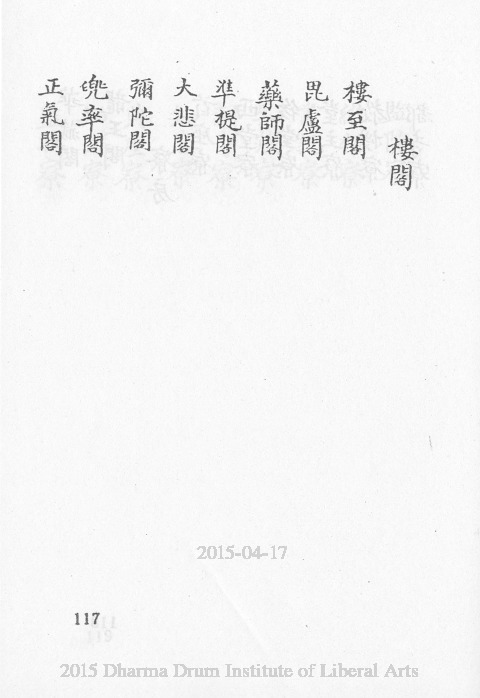 樓閣
樓至閣
毘盧閣
藥師閣
準提閣
大悲閣
彌陀閣
兜率閣
正氣閣
2015-04-17
117
2015 Dharma Drum Institute of Liberal Arts